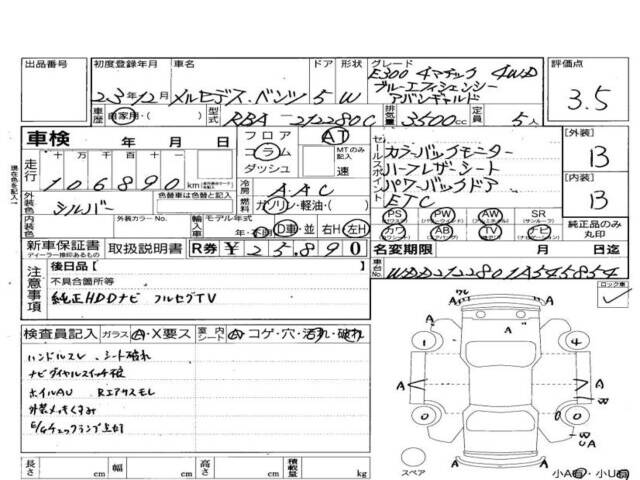 出品番号 初度登録年月 車名 ドア 形状 グレード 評価点
E300 4マチック 4WD
23年12月 メルセデス・ベンツ 5 W ブルーエフィシェンシー
アバンギャルド
3.5
車歴 自家用・( ) 型式 RBA-212280C 排気量 3500cc 定員 5人
車検 年 月 日
フロア コラム ダッシュ
AT
MTのみ記入
速
セールスポイント
カラーバックモニター
ハーフレザーシート
パワーバックドア
ETC
[外装]
B
[内装]
B
純正品のみ丸印
走行 十 万 千 百 十 一
106890 km
冷房 AAC
燃料 ガソリン・軽油・( )
外装色 シルバー
色替車は色替と記入
外装カラーNo. 内装色
輸入車 モデル年式
年・不明 D車・並 右H・左H
PS PW AW SR
(サンルーフ)
カワ AB TV ナビ
新車保証書
ディーラー捺印あるもの
取扱説明書 R券 ¥25,890
名変期限 月 日迄
車台No. WDD2122801A545854
注意事項
後日品[ ]
不具合箇所等
純正HDDナビ フルセグTV
ロック車
検査員記入 ガラス A・X要ス 室内シート A・コゲ・穴・汚れ・破れ
ハンドルスレ シート破れ
ナビダイヤルスイッチ
ホイルAU Rエアサスモレ
外装メッキくすみ
E/Gチェックランプ点灯
A
A
1 4
A A A A
B
0 0
B
UA
A
スペア
小A・小U
長さ cm 幅 cm 高さ cm 積載量 kg
現在色を記入